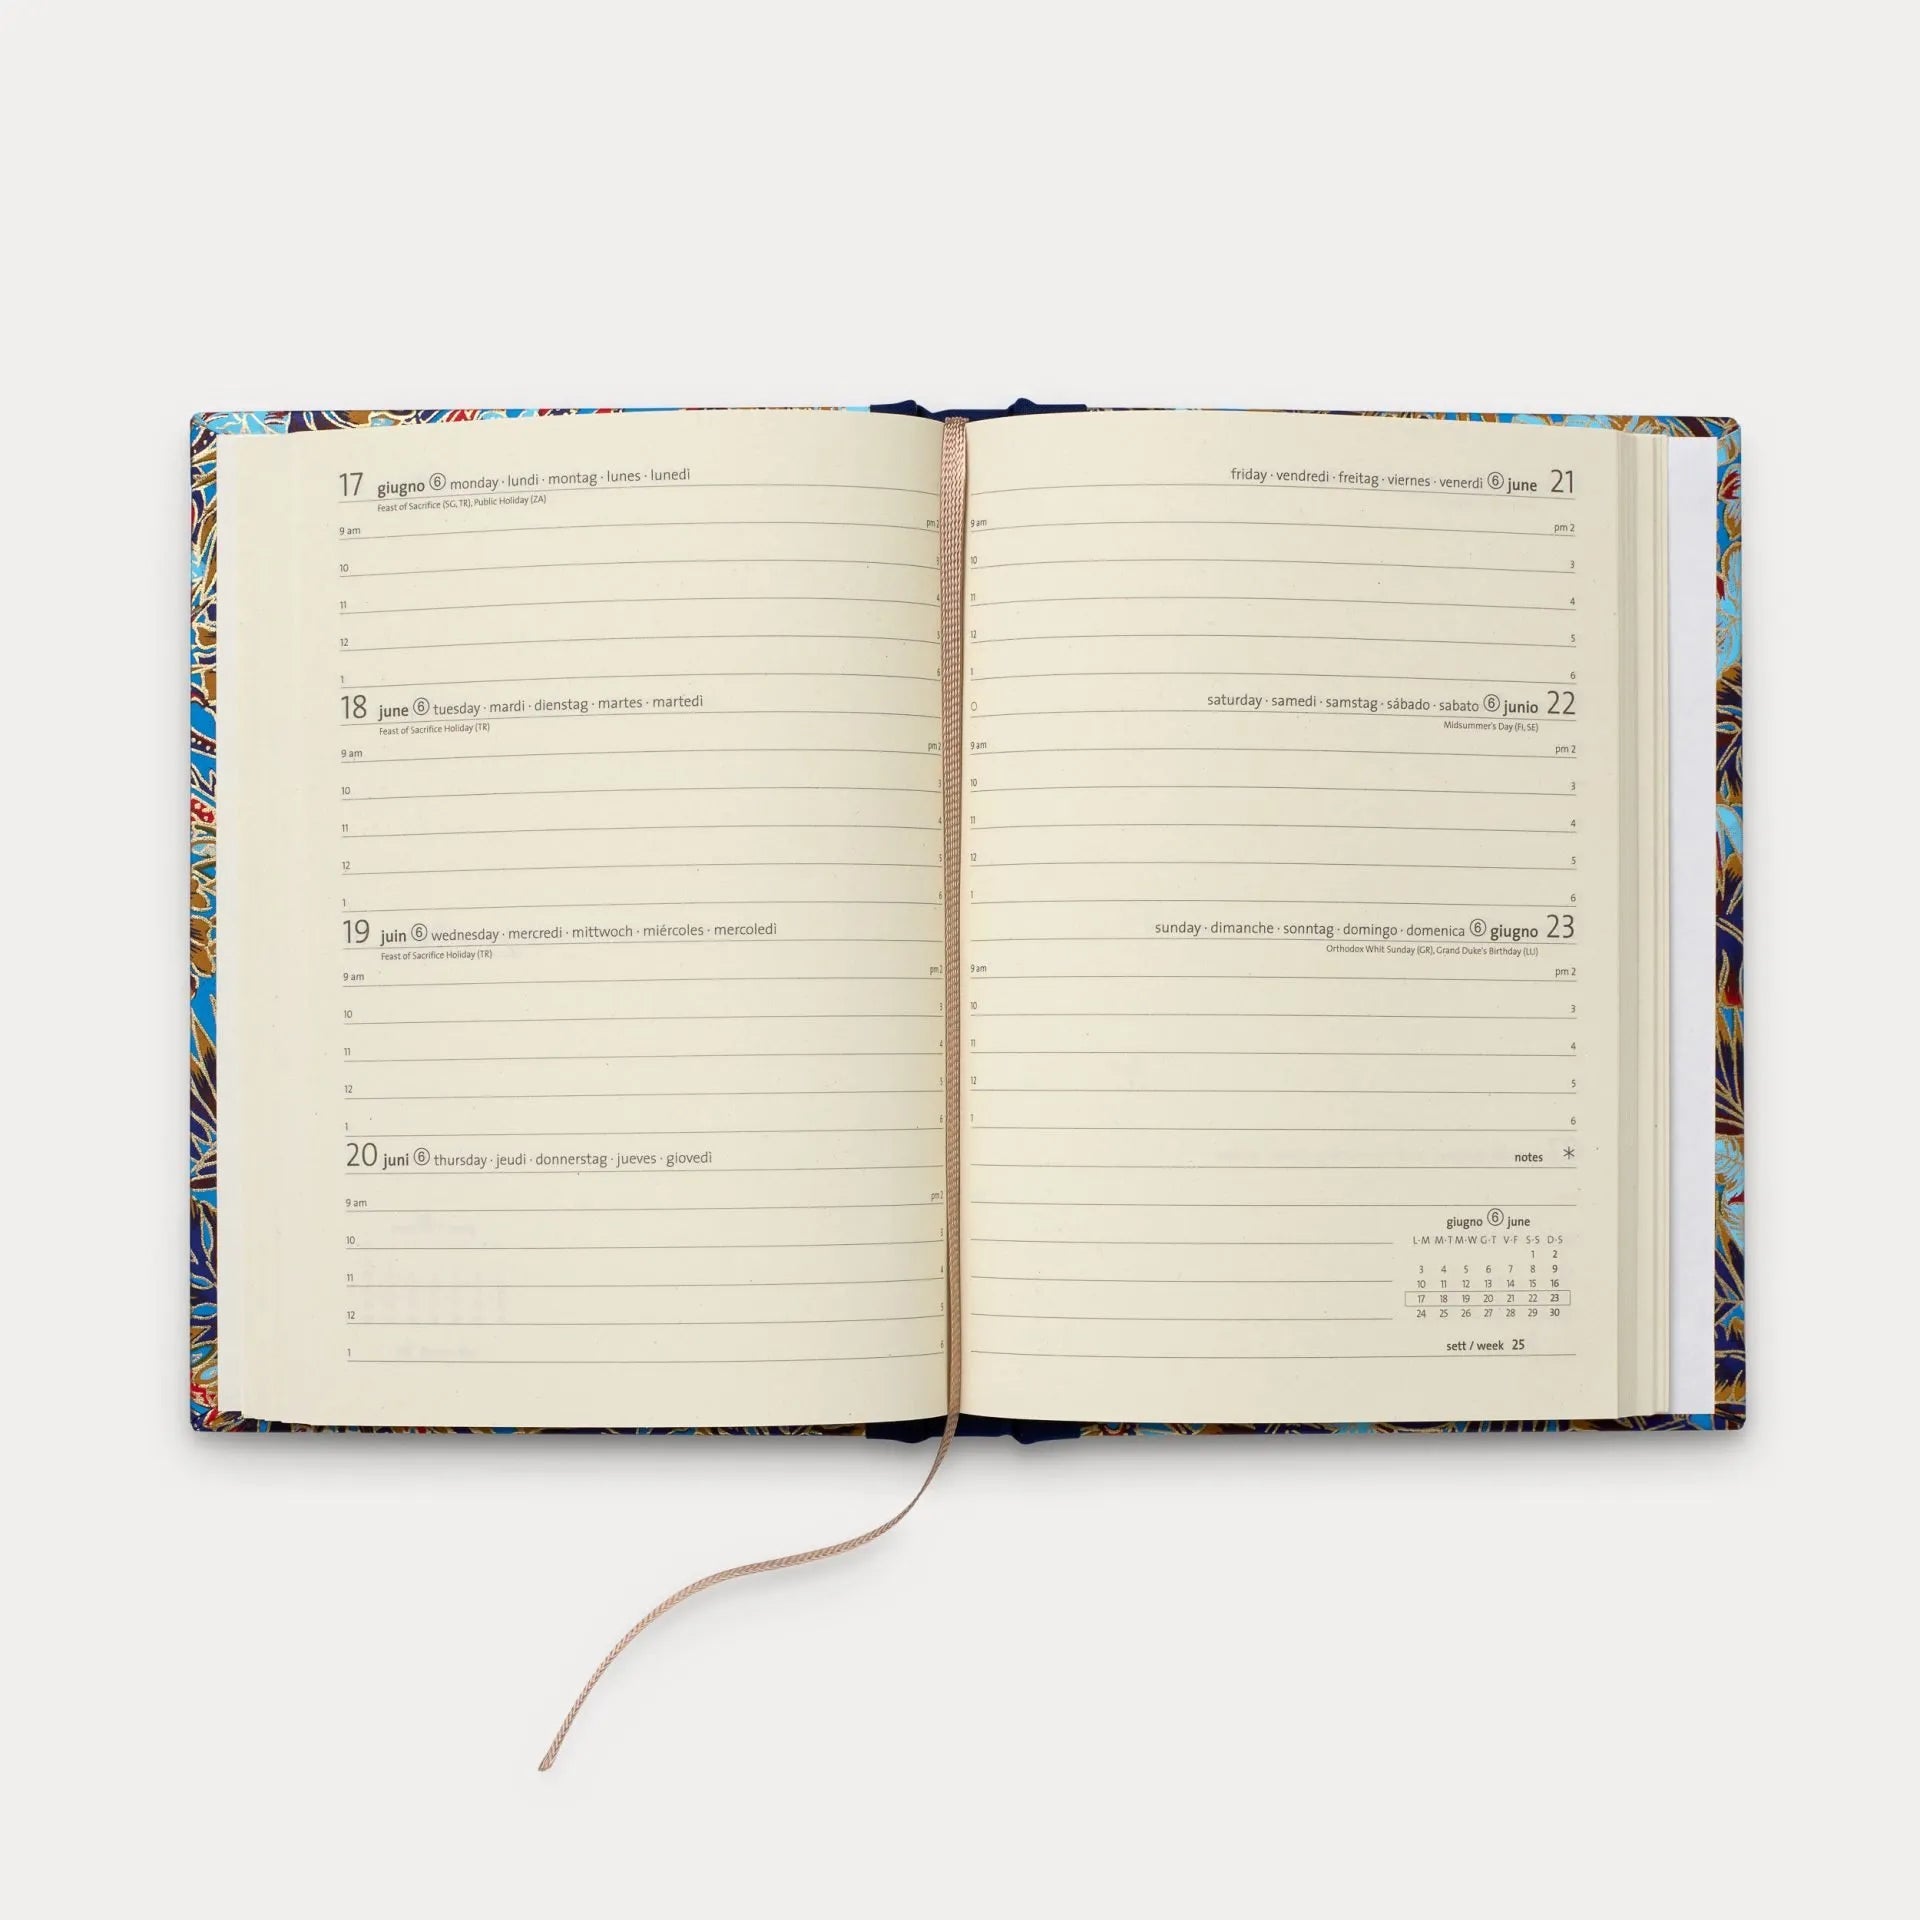 17 giugno ⑥ monday · lundi · montag · lunes · lunedì
Feast of Sacrifice (SG, TR), Public Holiday (ZA)
9 am pm 2
10 3
11 4
12 5
1 6
18 june ⑥ tuesday · mardi · dienstag · martes · martedì
Feast of Sacrifice Holiday (TR)
9 am pm 2
10 3
11 4
12 5
1 6
19 juin ⑥ wednesday · mercredi · mittwoch · miércoles · mercoledì
Feast of Sacrifice Holiday (TR)
9 am pm 2
10 3
11 4
12 5
1 6
20 juni ⑥ thursday · jeudi · donnerstag · jueves · giovedì
9 am pm 2
10 3
11 4
12 5
1 6
friday · vendredi · freitag · viernes · venerdì ⑥ june 21
9 am pm 2
10 3
11 4
12 5
1 6
saturday · samedi · samstag · sábado · sabato ⑥ junio 22
Midsummer's Day (FI, SE)
9 am pm 2
10 3
11 4
12 5
1 6
sunday · dimanche · sonntag · domingo · domenica ⑥ giugno 23
Orthodox Whit Sunday (GR), Grand Duke's Birthday (LU)
9 am pm 2
10 3
11 4
12 5
1 6
notes *
giugno ⑥ june
L·M M·T M·W G·T V·F S·S D·S
1 2
3 4 5 6 7 8 9
10 11 12 13 14 15 16
17 18 19 20 21 22 23
24 25 26 27 28 29 30
sett / week 25